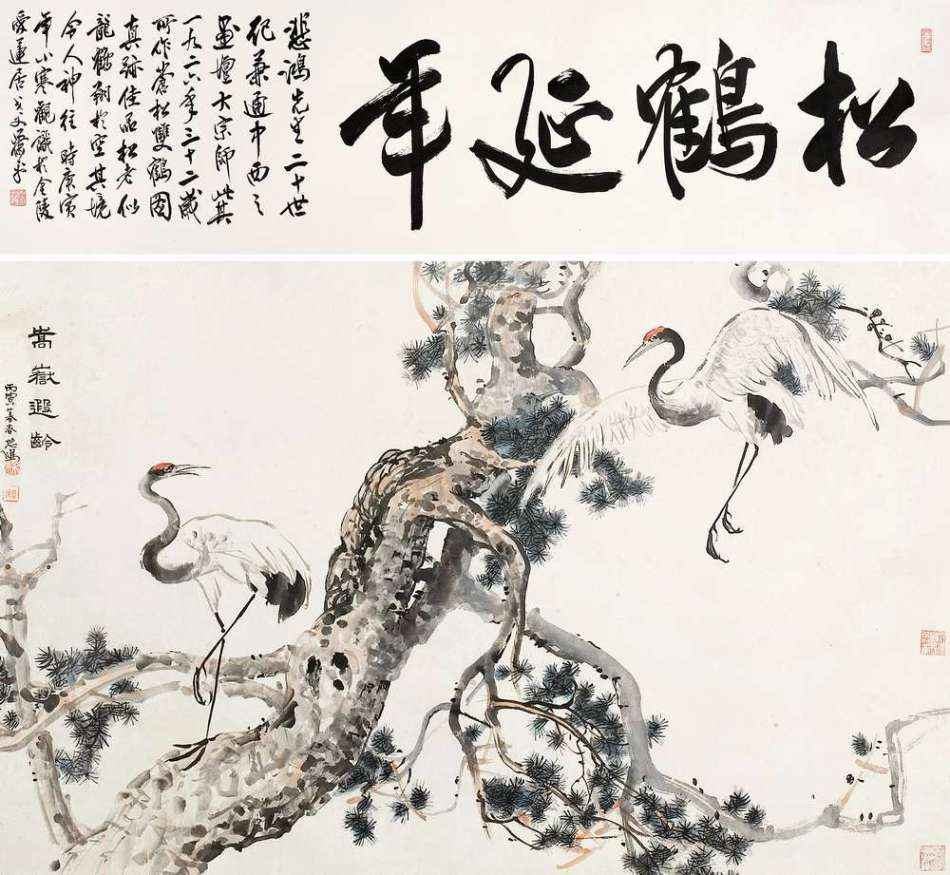 松鶴延年
悲鴻先生二十世
紀兼通中西之
畫壇大宗師此其
一九二六年三十二歲
所作蒼松雙鶴圖
真跡佳品松老似
龍鶴翔於空其境
令人神往時庚寅
年小寒觀識於金陵
愛蓮居戈父蕭平
嵩嶽遐齡
丙寅暮春悲鴻